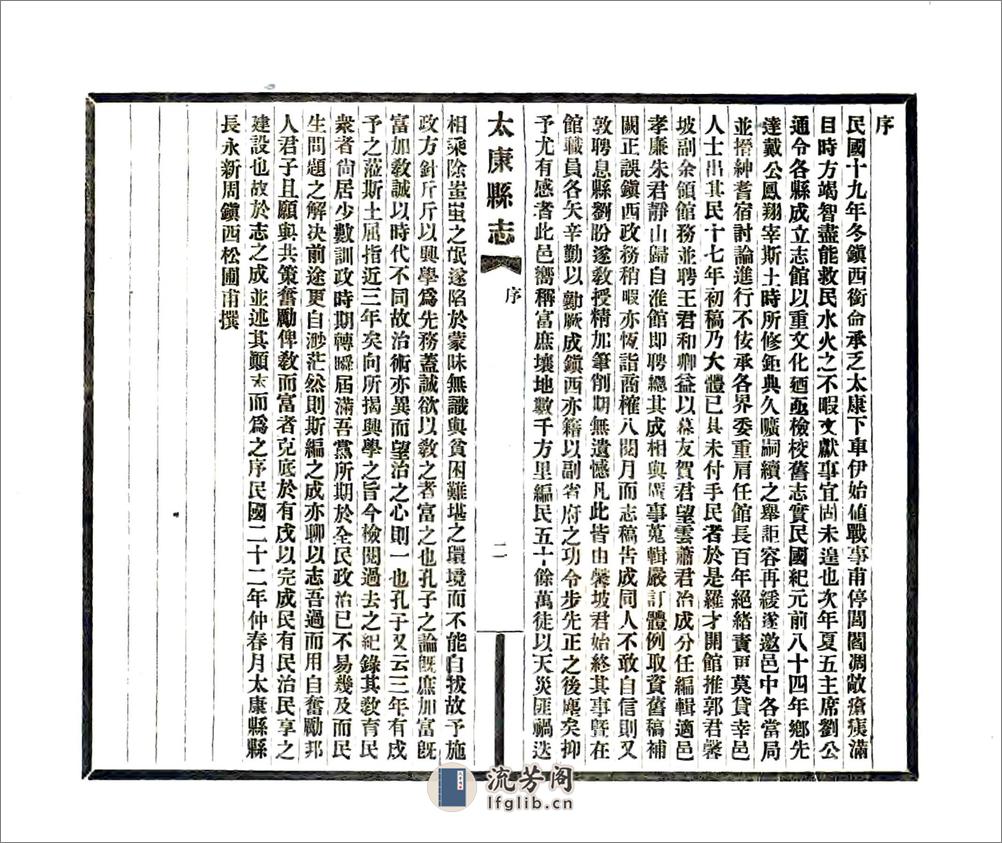 序
民國十九年冬鎮西銜命承乏太康下車伊始値戰事甫停閭閻凋敝瘡痍滿
目時方竭智盡能救民水火之不暇文獻事宜尙未遑也次年夏五主席劉公
通令各縣成立志館以重文化迺亟檢校舊志實民國紀元前八十四年鄉先
達戴公鳳翔宰斯土時所修鉅典久曠嗣續之舉詎容再緩遂邀邑中各當局
並搢紳耆宿討論進行不佞承各界委重肩任館長百年絕緒責更莫貸幸邑
人士出其民十七年初稿乃大體已具未付手民者於是羅才開館推郭君馨
坡副余領館務並聘王君和卿益以幕友賀君望雲蕭君冶成分任編輯適邑
孝廉朱君靜山歸自淮館即聘總其成相與廣事蒐輯嚴訂體例取資舊稿補
闕正誤鎮西政務稍暇亦恆詣商榷八閱月而志稿告成同人不敢自信則又
敦聘息縣劉盼遂敎授精加筆削期無遺憾凡此皆由馨坡君始終其事曁在
館職員各矢辛勤以勷厥成鎮西亦籍以副省府之功令步先正之後塵矣抑
予尤有感者此邑嚮稱富庶壤地數千方里編民五十餘萬徒以天災匪禍迭
太康縣志
序
二
相乘除蚩蚩之氓遂陷於蒙昧無識與貧困難堪之環境而不能自拔故予施
政方針斤斤以興學爲先務蓋誠欲以敎之者富之也孔子之論旣庶加富旣
富加敎誠以時代不同故治術亦異而望治之心則一也孔子又云三年有成
予之蒞斯土屈指近三年矣向所揭興學之旨今檢閱過去之紀錄其敎育民
衆者尙居少數訓政時期轉瞬屆滿吾黨所期於全民政治已不易幾及而民
生問題之解決前途更自渺茫然則斯編之成亦聊以志吾過而用自奮勵邦
人君子且願與共策奮勵俾敎而富者克底於有成以完成民有民治民享之
建設也故於志之成並述其顚末而爲之序民國二十二年仲春月太康縣縣
長永新周鎮西松圃甫撰
流芳阁
lfglib.cn